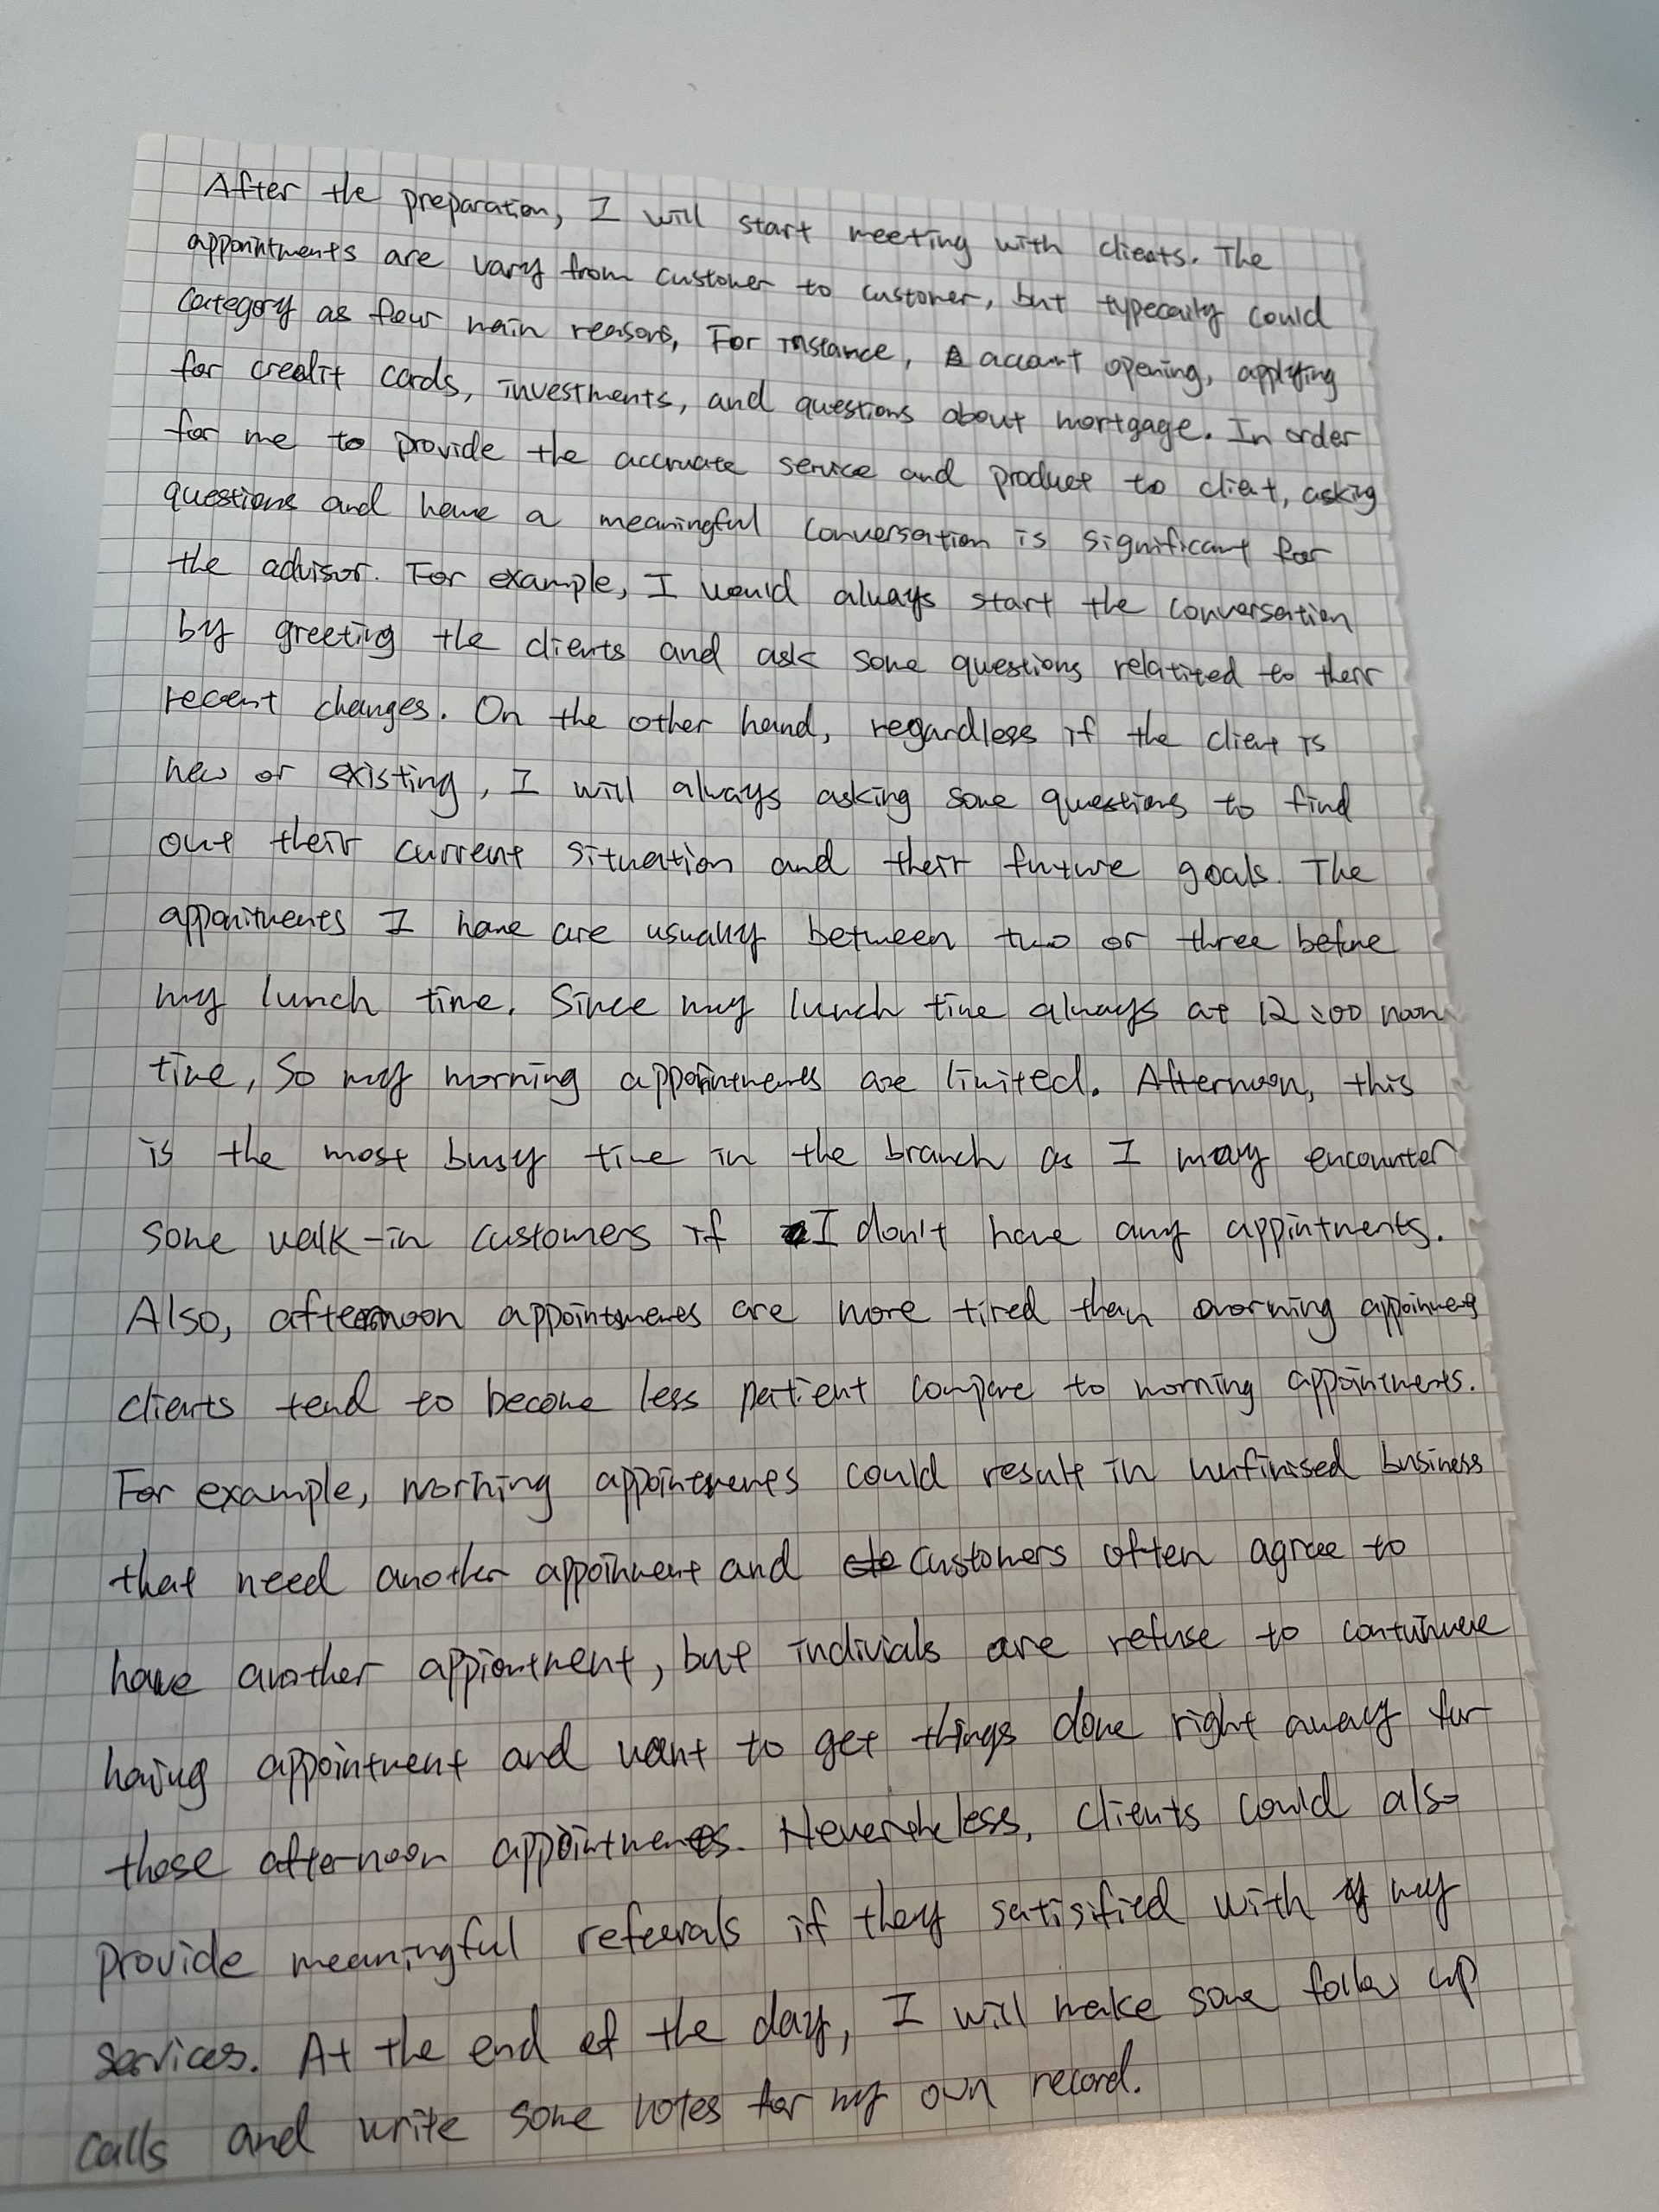 After the preparation, I will start meeting with clients. The
appointments are vary from customer to customer, but typecaily could
category as four main reasons, For instance, account opening, applying
for credit cards, investments, and questions about mortgage. In order
for me to provide the accruate service and product to client, asking
questions and have a meaningful conversation is significant for
the advisor. For example, I would always start the conversation
by greeting the clients and ask some questions relatited to their
recent changes. On the other hand, regardless if the client is
new or existing, I will always asking some questions to find
out their current situation and their future goals. The
apponitments I have are usually between two or three before
my lunch time. Since my lunch time always at 12:00 noon
time, So my morning appointments are limited. Afternoon, this
is the most busy time in the branch as I may encounter
some walk-in customers if I don't have any appintments.
Also, afternoon appointments are more tired than morning appoinments
clients tend to become less patient compare to morning appointments.
For example, morning appointments could result in unfinised business
that need another appoinment and customers often agree to
have another appiontment, but indivials are refuse to continuue
having appointment and want to get things done right away for
those afternoon appointments. Nevertheless, clients could also
provide meaningful refeerals if they satisified with my
services. At the end of the day, I will make some follow up
calls and write some notes for my own record.